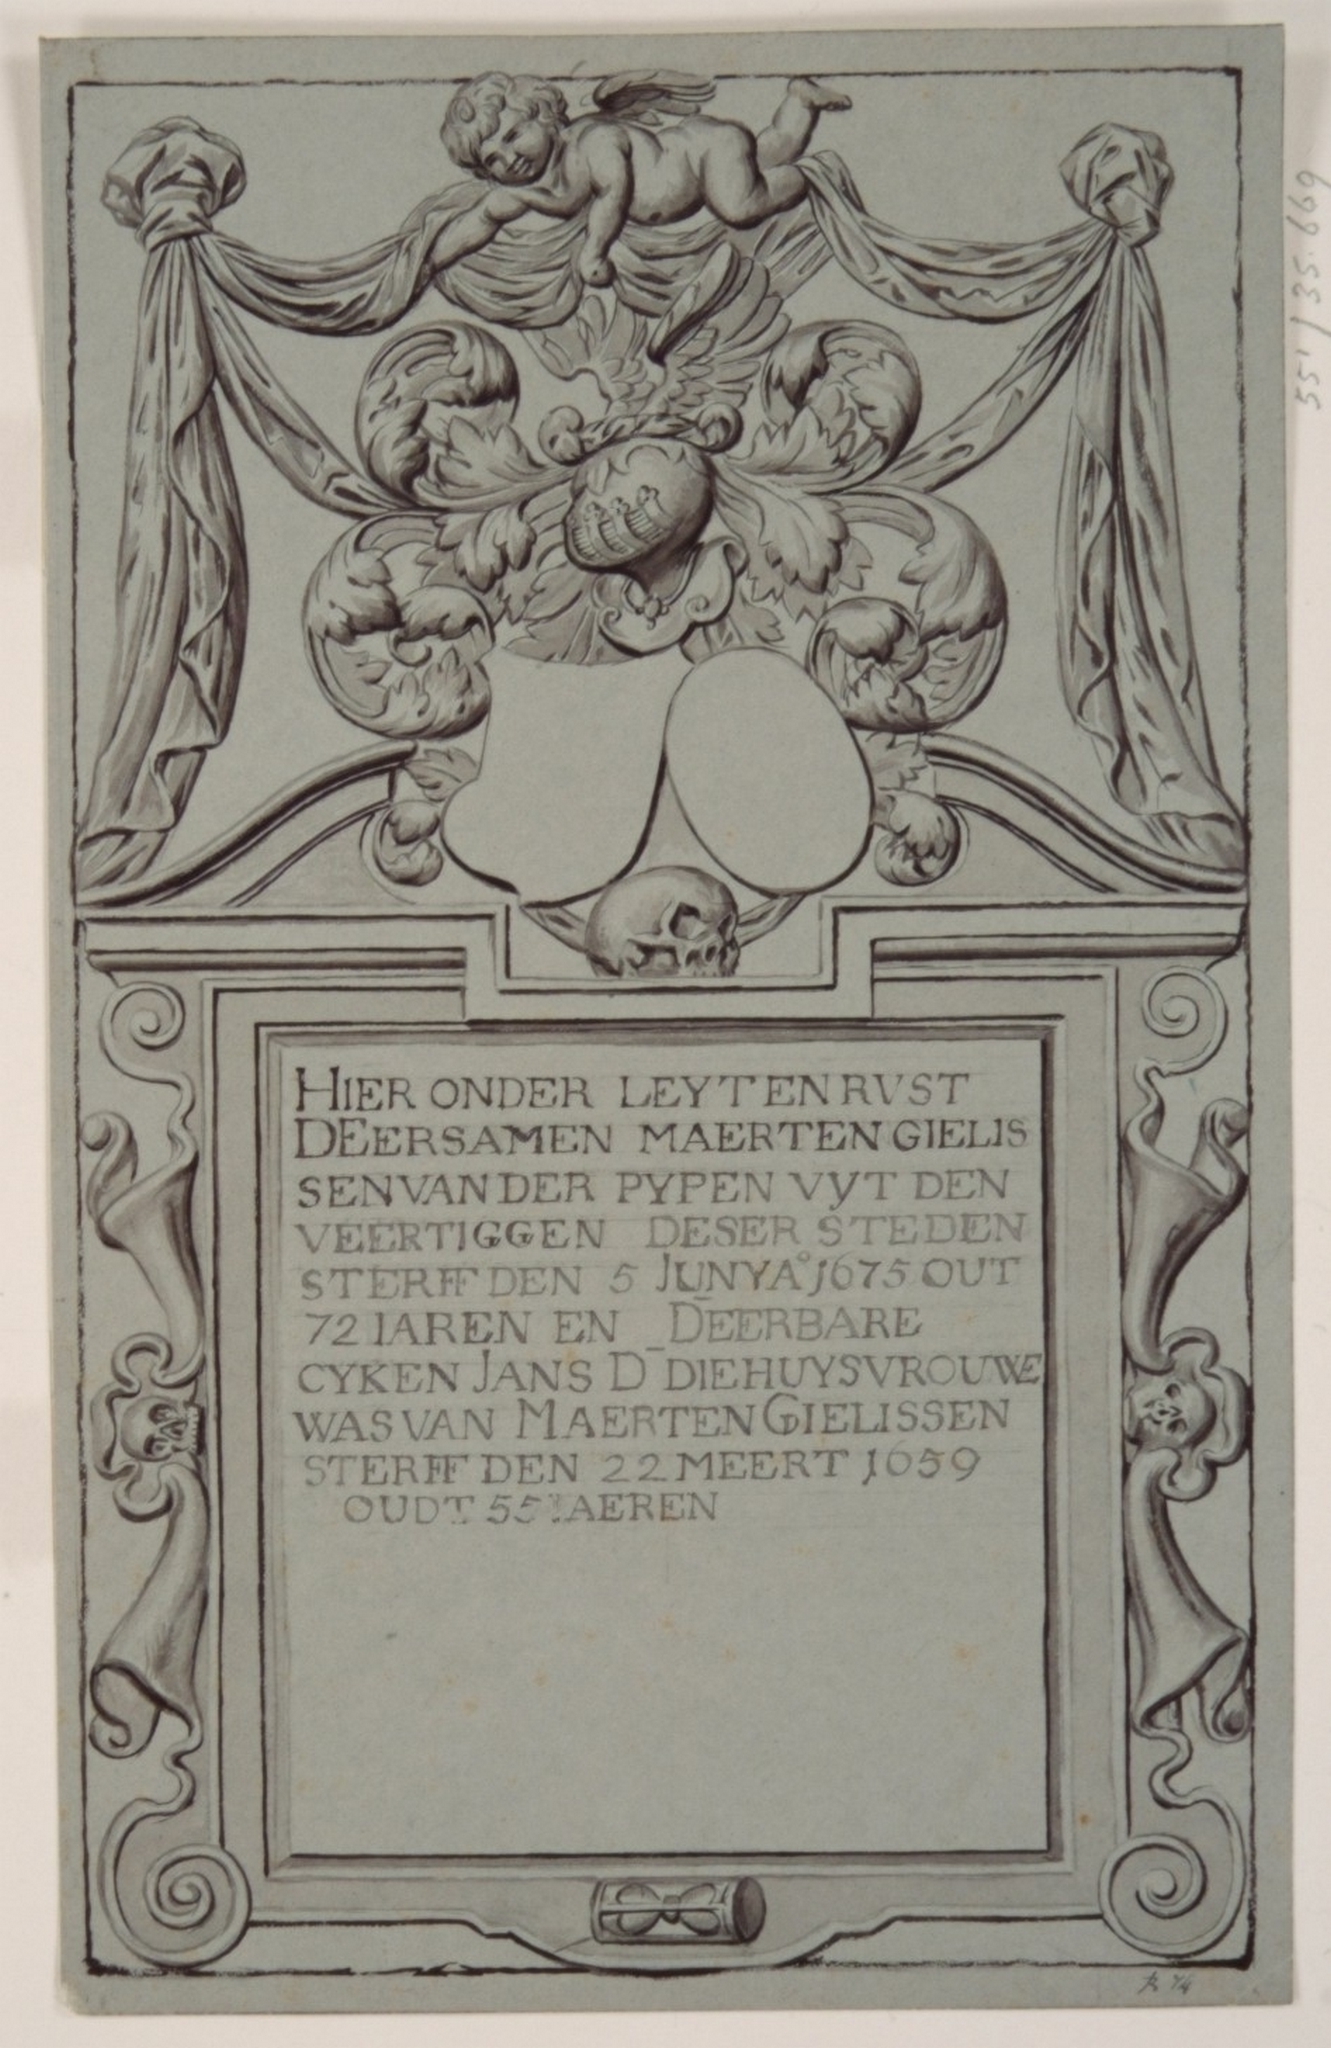 HIER ONDER LEYT EN RVST
DEERSAMEN MAERTEN GIELIS
SEN VAN DER PYPEN VYT DEN
VEERTIGGEN DESER STEDEN
STERFF DEN 5 JUNY Aº 1675 OUT
72 IAREN EN DEERBARE
CYKEN JANS D DIE HUYSVROUWE
WAS VAN MAERTEN GIELISSEN
STERFF DEN 22 MEERT 1659
OUDT 55 IAEREN
551/35.669